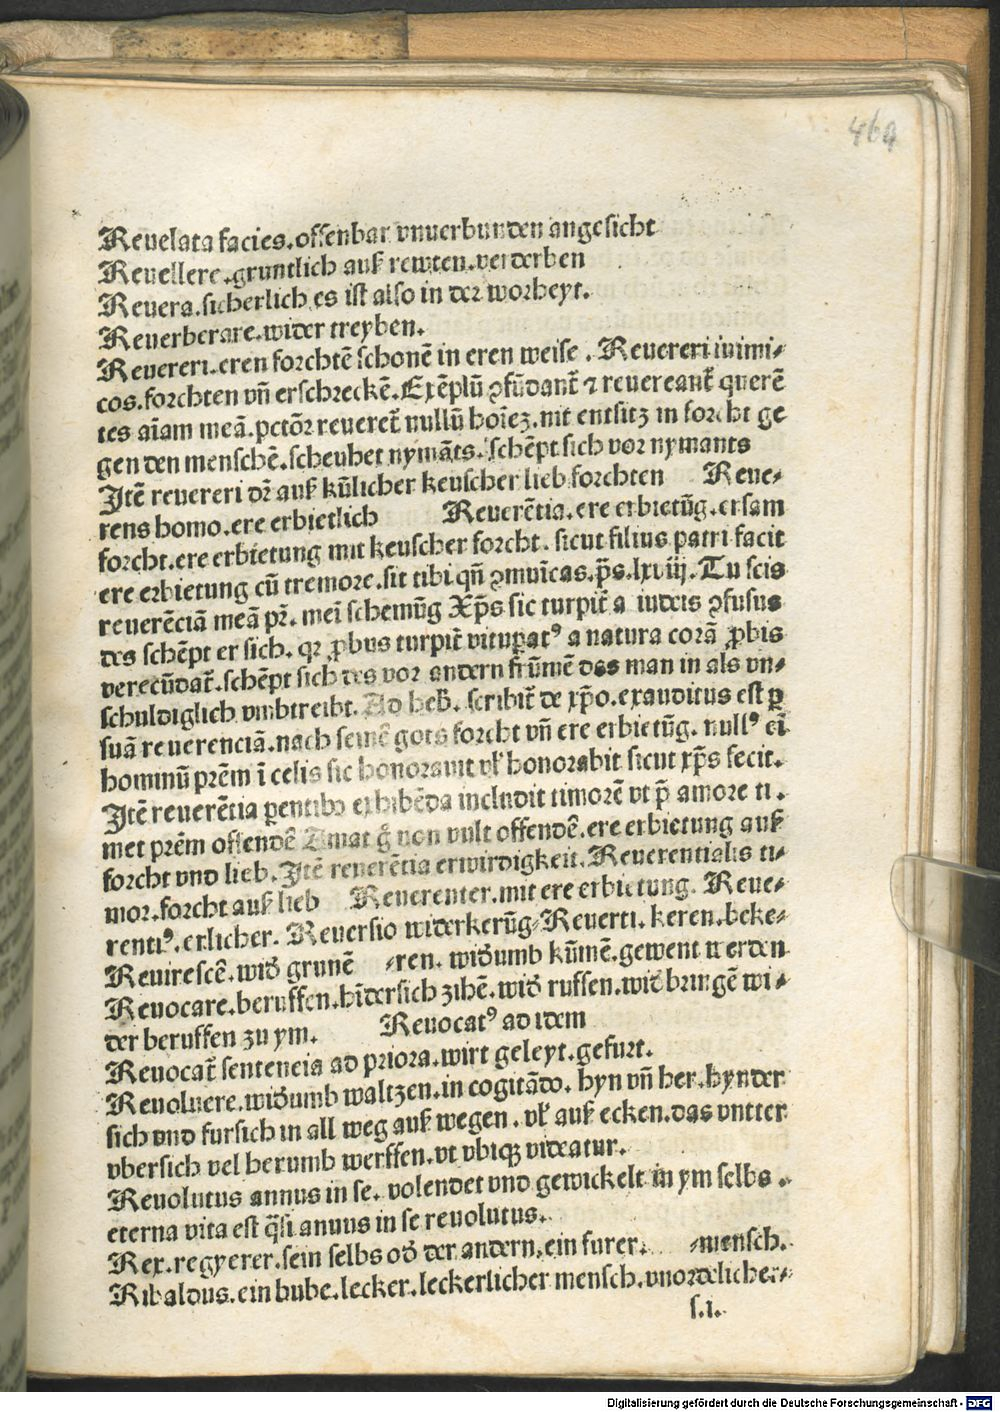 464
Reuelata facies.offenbar vnuerbunden angesicht
Reuellere.gruntlich auß rewten.verderben
Reuera.sicherlich es ist also in der worheyt.
Reuerberare.wider treyben.
Reuereri.eren forchtē schonē in eren weise . Reuereri inimi⸗
cos.forchten vn̄ erschreckē.Exēplū ꝯfūdant᷑ ⁊ reuereant᷑ querē
tes aīam meā.pctōꝛ reueret᷑ nullū hoīeꝫ.nit entsitz in forcht ge
gen den menschē.scheuhet nymāts. schēpt sich vor nymants
Jtē reuereri dꝛ̄ auß kūlicher keuscher lieb forchten Reue⸗
rens homo.ere erbietlich Reuerētia.ere erbietūg.ersam
forcht.ere erbietung mit keuscher forcht. sicut filius patri facit
ere erbietung cū tremore.sit tibi qn̄ ꝯmuīcas.p̄s.lxviij. Tu scis
reuerēciā meā pr̄. mei schemūg Xp̄s sic turpit᷑ a iudeis ꝯfusus
des schēpt er sich. qꝛ ꝓbus turpit᷑ vituꝑatꝰ a natura corā ꝓbis
verecūdat᷑.schēpt sich des vor andern frūmē das man in als vn⸗
schuldiglich vmbtreibt. Ad heb̄. scribit᷑ de xp̄o.exauditus est ꝑ
suā reuerenciā.nach seinē gots forcht vn̄ ere erbietūg. nullꝰ ei
hominū prēm ī celis sic honorauit vl̓ honorabit sicut xp̄s fecit.
Jtē reuerētia ꝑentibꝫ exhibēda includit timorē vt p̄ amore ti .
met prēm offendē Amat g̊ non vult offendē.ere erbietung auß
forcht vnd lieb. Jtē reuerētia erwirdigkeit. Reuerentialis ti⸗
mor.forcht auß lieb Reuerenter.mit ere erbietung. Reue⸗
rentiꝰ.erlicher. Reuersio widerkerūg⸗Reuerti. keren.beke⸗
Reuirescē.wid̓ grunē ⸗ren. wid̓umb kūmē.gewent werden
Reuocare.beruffen.hīdersich zihē.wid̓ ruffen.wid̓ bringē wi⸗
der beruffen zu ym. Reuocatꝰ ad idem
Reuocat᷑ senteneia ad priora.wirt geleyt.gefurt.
Reuoluere.wid̓umb waltzen.in cogitādo. hyn vn̄ her.hynder
sich vnd fursich in all weg auß wegen . vl̓ auß ecken.das vntter
vbersich vel herumb werffen.vt vbiqꝫ videatur.
Reuolutus annus in se. volendet vnd gewickelt in ym selbs .
eterna vita est q̄si annus in se reuolutus.
Rex.regyerer.sein selbs od̓ der andern.ein furer. ⸗mensch.
Ribaldus.ein bube.lecker.leckerlicher mensch.vnordelicher⸗
s.i.
Digitalisierung gefördert durch die Deutsche Forschungsgemeinschaft - DFG